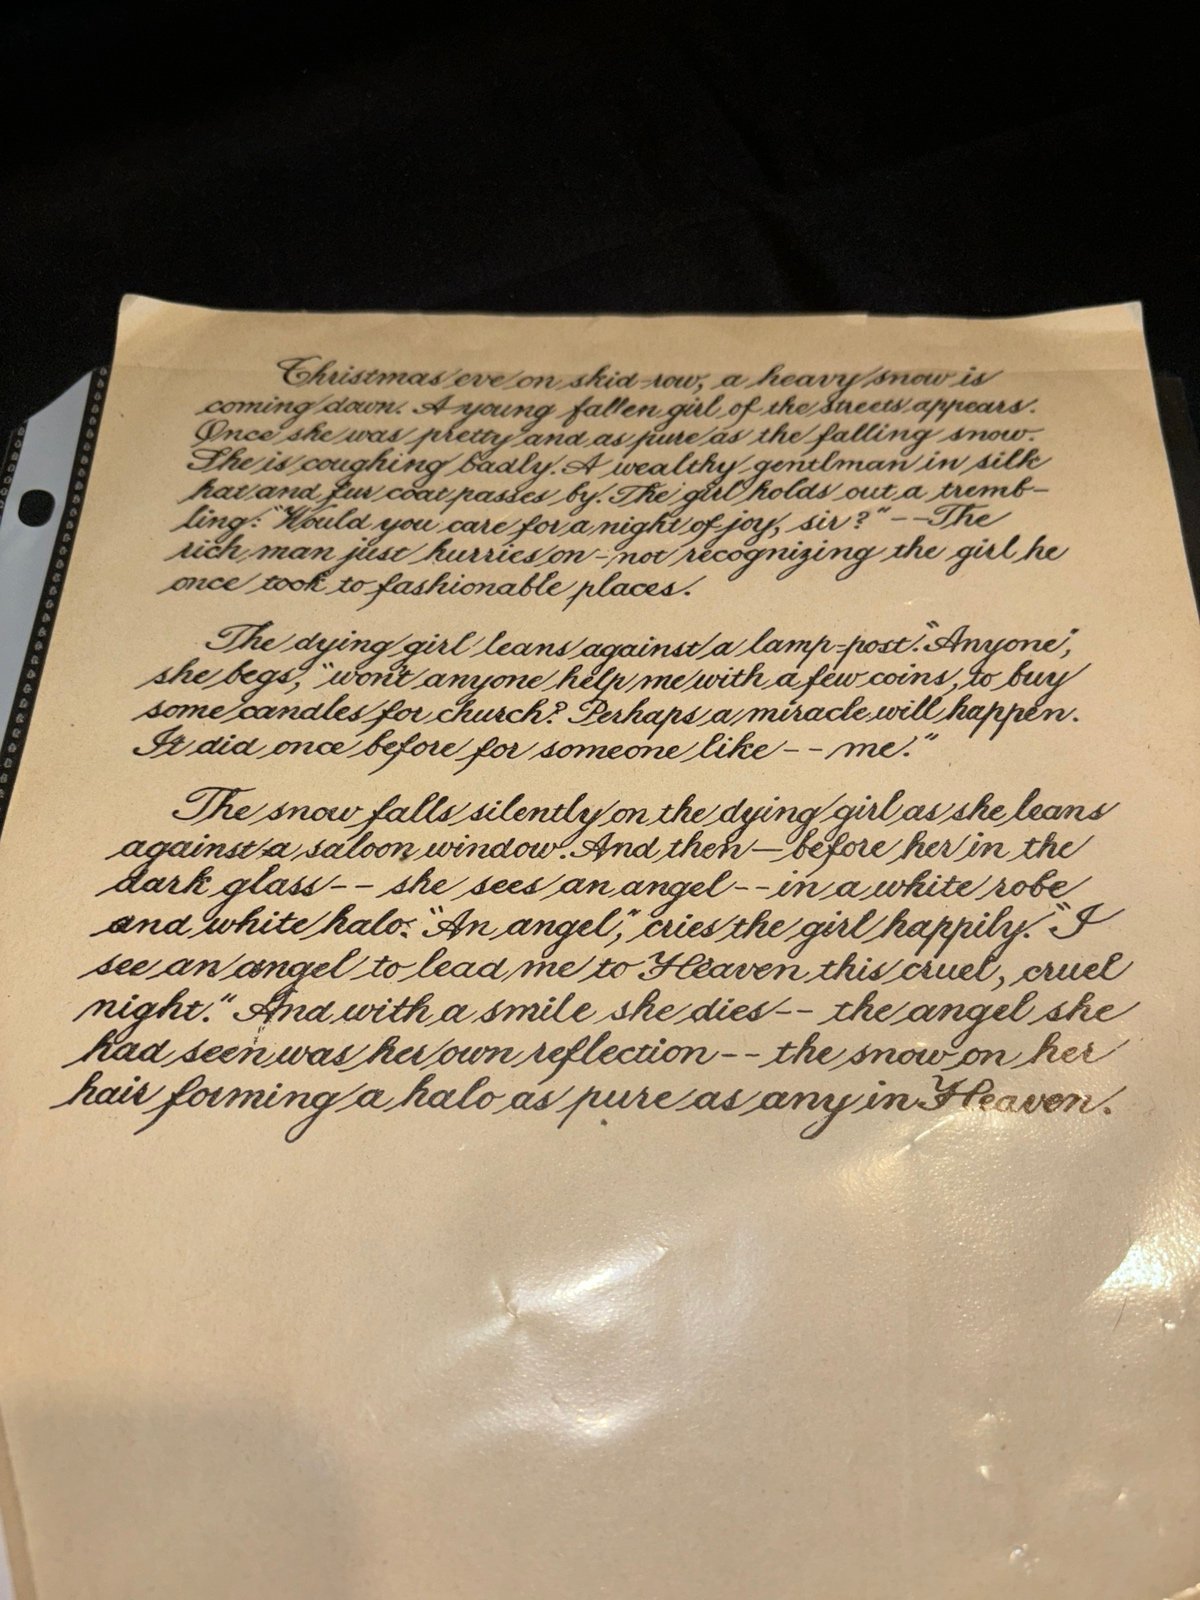 Christmas eve on skid-row, a heavy snow is
coming down. A young fallen girl of the streets appears.
Once she was pretty and as pure as the falling snow.
She is coughing badly. A wealthy gentlman in silk
hat and fur coat passes by. The girl holds out a tremb-
ling: "Would you care for a night of joy, sir?" -- The
rich man just hurries on - not recognizing the girl he
once took to fashionable places.
The dying girl leans against a lamp-post. "Anyone",
she begs, "won't anyone help me with a few coins, to buy
some candles for church? Perhaps a miracle will happen.
It did once before for someone like -- me."
The snow falls silently on the dying girl as she leans
against a saloon window. And then — before her in the
dark glass -- she sees an angel -- in a white robe
and white halo. "An angel," cries the girl happily. "I
see an angel to lead me to Heaven this cruel, cruel
night." And with a smile she dies -- the angel she
had seen was her own reflection -- the snow on her
hair forming a halo as pure as any in Heaven.